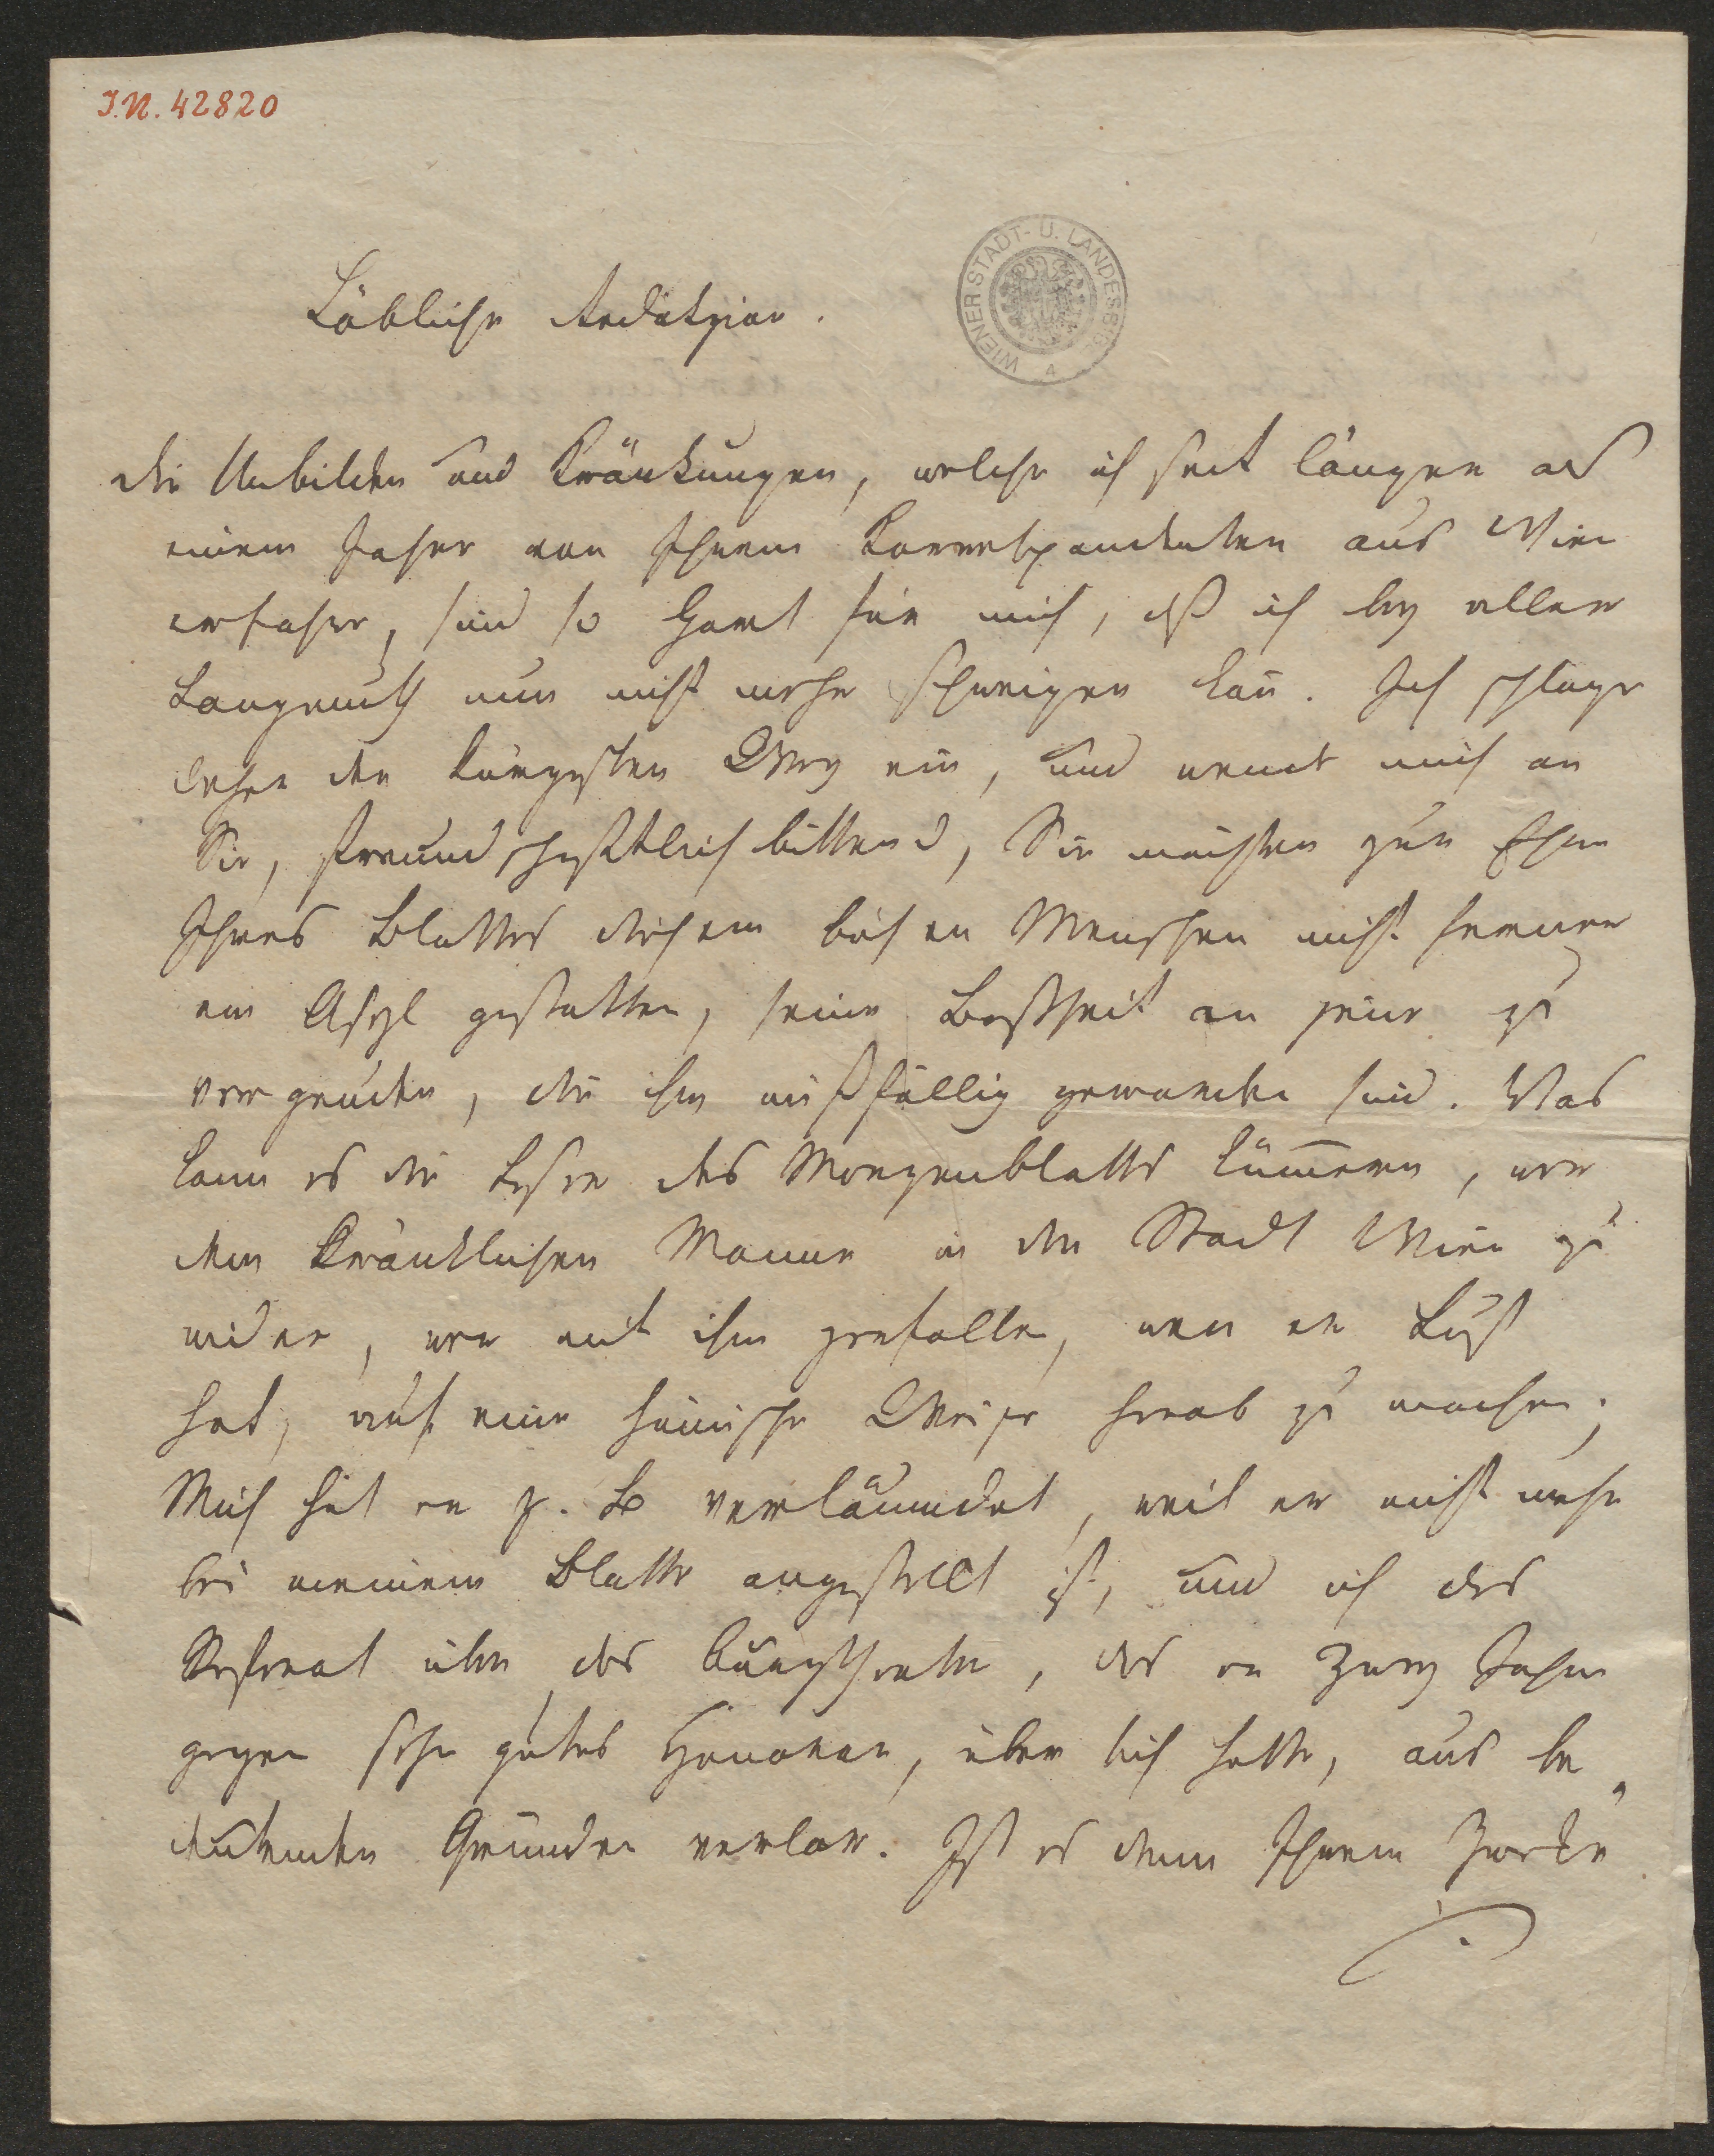 I.N. 42820
WIENER STADT- U. LANDESBIBL.
A
Löbliche Redakzion.
Die Unbilden und Kränkungen, welche ich seit länger als
einem Jahre von Ihrem Korrespondenten aus Wien
erfahre, sind so hart für mich, daß ich bey aller
Langmuth nun nicht mehr schweigen kan̄. Ich schlage
daher den kürzesten Weg ein, und wende mich an
Sie, freundschaftlich bittend, Sie möchten zur Ehre
Ihres Blattes diesem bösen Menschen nicht ferner
ein Asyl gestatten, seine Bosheit an jene zu
vergeuden, die ihm mißfällig geworden sind. Was
kann es die Leser des Morgenblatts küm̄ern, wer
dem kränklichen Manne in der Stadt Wien zu
wider, wer mit ihm zerfallen, wen er Lust
hat, auf eine hämische Weise herab zu machen;
Mich hat er z. B verläumdet, weil er nicht mehr
bei meinem Blatte angestellt ist, und ich das
Referat über das Burgtheater, das er zwey Jahre
gegen sehr gutes Honorar, über sich hatte, aus be„
deutenden Gründen verlor. Ist es denn Ihrem Zwecke